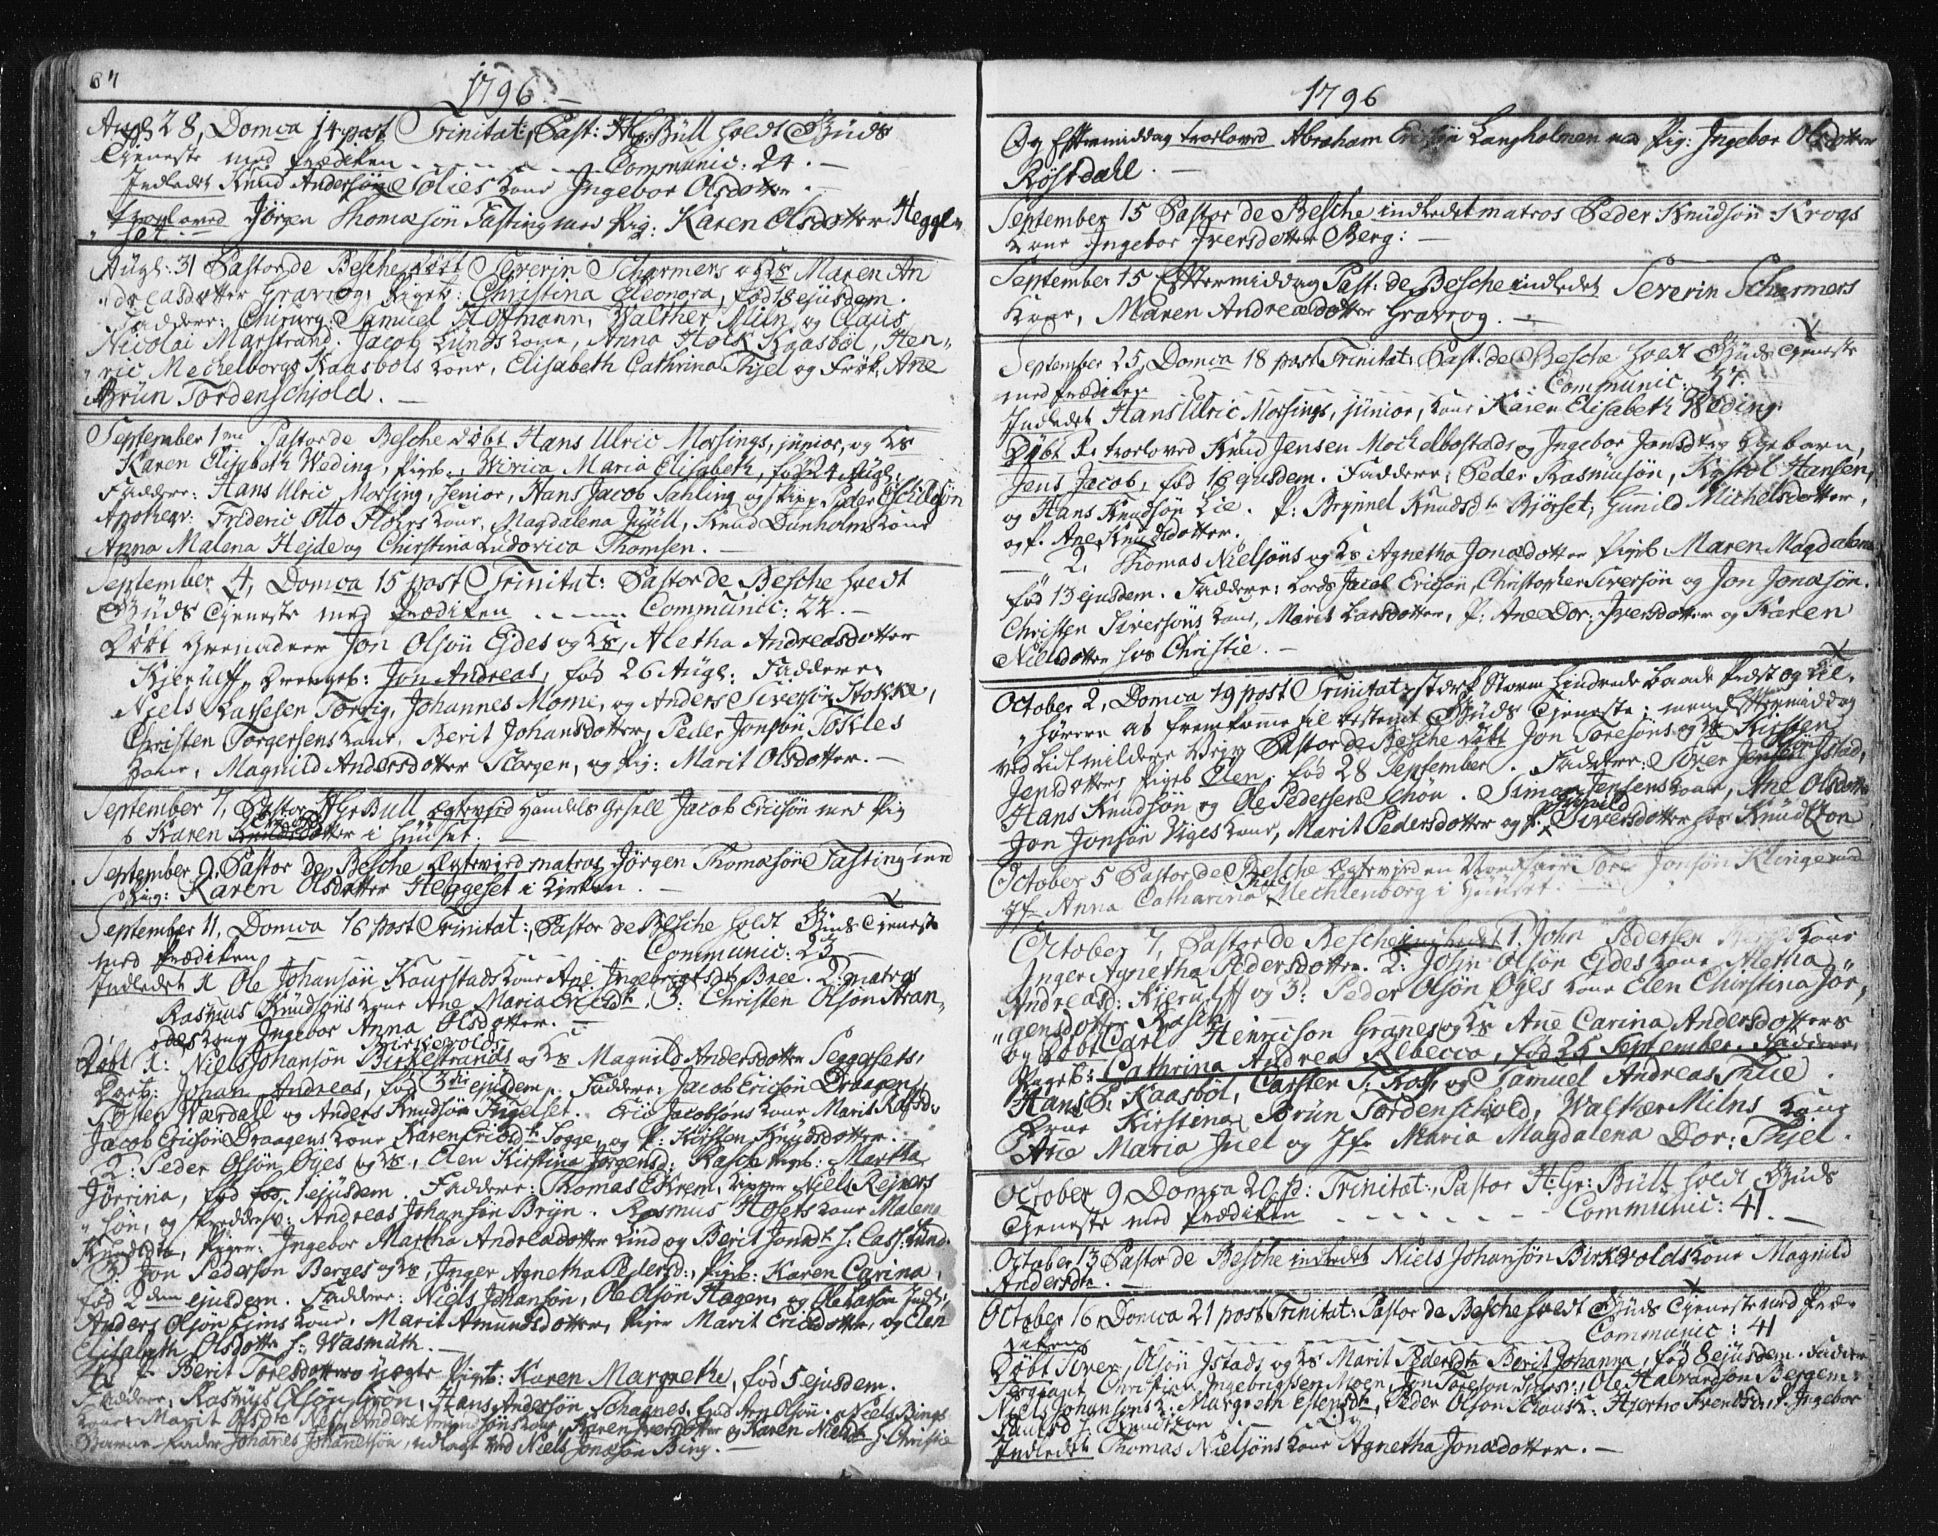 67
1796.
Augl: 28, Domca 14 post Trinitat: Past: H Gr Büll holdt Gŭds
Tjeneste med Prædiken Communic: 24.
Indledet Knŭd Andersøn Solies kone Ingebor Olsdotter.
troloved Jörgen Thomæsön Tasting med Pig: Karen Olsdotter Heggl=
set.
Aŭgl: 31 Pastor de Besche döbt Severin Scharmers og Ks Maren An
dreasdotter Gravrog, Pigeb: Christina Eleonora, föd 18 ejusdem.
Faddere: Chirurg: Samuel Hofmann, Walther Miln og Claus
Nicolai Marstrand. Jacob Lunds kone, Anna Holk Kaasböl, Hen=
ric Mechelborgs Kaasböls kone, Elisabeth Cathrina Thjel og Frök: Ane
Brün Tordenschjold.
September 1me Pastor de Besche döbt Hans Ulric Morsings, jünior, og Ks
Karen Elisabeth Weding, Pigeb., Wirica Maria Elisabeth, föd 24 Aŭgl.
Faddere: Hans Ulric Morsing, senior, Hans Jacob Sahling og Skipp Peder Eschilsön
Apoteqr: Frideric Otto Flohrs kone, Magdalena Jüül, Knud Dunholms kone
Anna Malena Hejde og Chirstina Ludovica Thomsen.
September 4, Domca 15 post Trinitat: Pastor de Besche holdt
Gŭds Tjeneste med Prædiken Communic: 22.
Döbt Grenadeer Jon Olsön Ejdes og Ks, Aletha Andreasdotter
Kjerulff, Drengeb: Jon Andreas, föd 26 Aŭgl: Faddere:
Niels Larsesen Torvig, Johannes Mome, og Anders Siversön Stokke,
Christen Torgersens kone, Berit Johansdotter, Peder Jonsön Tokles
kone, Magnild Andersdotter Storgen, og Pig: Marit Olsdotter.
September 7, Pastor H Gr Büll ægtevied Handels Gesell Jacob Ericsön med Pig
Karen Knudsdotter i Hŭuset.
September 9. Pastor de Besche Ægtevied matros Jörgen Thomæsön Tasting med
Pig: Karen Olsdotter Heggeset i Kirken.
September 11, Domca 16 post Trinitat:, Pastor de Besche holdt Gŭds Tjeneste
med Prædiken Communic: 23
Indledet 1 Ole Johansön Kaarstads kone Ane Ingebrigtsdt Bree. 2 matros
Rasmus Knŭdsöns kone Ane Maria Ericsdt, 3: Christen Olsön Stran=
des kone Ingebor Anna Olsdotter.
Birkevolds
Döbt 1: Niels Johansön Birkestrands og Ks Magnild Andersdotter Seggesets,
Drgb: Johan Andreas, föd 3die ejŭsdem. Faddere: Jacob Ericsön Draagen,
Tosten Wærdall og Anders Knŭdsön Fugelset. Eric Jacobsöns kone Marit Rolfsd:
Jacob Ericsön Draagens kone Karen Ericsdt Sogge, og P: Kirsten Knŭdsdotter.
2: Peder Olsön Öyes og Ks, Elen Kirstina Jörgensd: Rasch Pigeb: Martha
Jörrina, föd 1 ejŭsdem. Faddere: Thomas Ekrem, Niels Rejners
sön, og Skreddersv: Andreas Johansön Bryn. Rasmus Hosets kone Malena
Knŭdsdtr, Piger: Ingebor Martha Andreadotter Lind og Berit Jonsdt h: Cass: Lund
3: Jon Pedersön Berges og Ks, Inger Agnetha Pedersd:, Pigeb: Karen Carina,
föd 2den ejusdem. Faddere: Niels Johansön, Ole Olsön Hagen, og Ole Larsön
Anders Olsön Ejms kone, Marit Amundsdotter, Piger Marit Ericsdotter, og Elen
Elisabeth Olsdotter h: Wasmŭth.
4: P: Berit Toresdotters ŭægte Pigeb: Karen Margrethe, föd 5 ejusdem.
Faddere, Rasmus Olsön Gröн, Hans Andersön, Johannes Arn Olsön. Niels Bings
kone Marit Olsdtr Anders Amundsöns kone, Karen Iversdotter og Karen Nielsdt h: Christie
Barne Fader Johannes Johannesön, udlagt ved Niels Jonasön Bing.
1796
Og Eftermiddag troloved Abraham Ericsön Langholmen med Pig: Ingebor Olsdotter
Röistdahl.
September 15 Pastor de Besche indledet matros Peder Knŭdsön Krogs
kone Ingebor Iversdotter Berg:
September 15 Eftermiddag Past: de Besche indledet Severin Scharmers
kone, Maren Andreædotter Gravrog.
September 25, Domca 18 post Trinitat: Past: de Besche holdt Gŭds Tjeneste
med Prædiken Communic: 37.
Indledet Hans Ulric Morsings, jünior, kone Karen Elisabeth Weding
Döbt 1. troloved Knŭd Jensen Mechelbostads og Ingebor Jonsdtrs Drgebarn,
Jens Jacob, föd 16 ejusdem. Faddere: Peder Rasmŭsön, Kastol Hansen,
og Hans Knŭdsön Lie. P: Brynnel Knŭdsdtr Björset, Gunild Michelsdotter,
og P. Ane Knŭdsdotter.
2. Thomas Nielsöns og Ks Agnetha Jonædotter Pigeb. Maren Magdalena
föd 13 ejusdem. Faddere: Lods Jacob Ericsön, Christopher Siversön og Jon Jonæsön.
Christen Siversöns kone, Marit Larsdotter, P: Ane Dor: Iversdotter og Karen
Nielsdotter hos Christie.
October 2, Domca 19 post Trinitat. stærk Storm hindrede baade Præst og til=
hörere at fremkomme til bestemt Gŭds Tjeneste; men Eftermiddag
ved lidt mildere Vejr Pastor de Besche döbt Jon Toresöns og Ks Kirsten
Jensdotters Pigeb Elen, föd 28 September. Faddere: Siver Jensön Istad,
Hans Knŭdsön og Ole Pedersen Schou. Simon Jensens kone, Ane Olsdotter
Jon Jonsön Viges kone, Marit Pedersdotter og P: Siversdotter hos Knŭdtzon
October 5 Pastor de Besche Ægtevied en Tore Jonsön Klinge med
Jfr Anna Catharina Mechlenborg i Hŭuset.
October 7, Pastor de Besche indledet 1. John Pedersen Berges kone
Inger Agnetha Pedersdotter. 2: John Olsön Ejdes kone Aletha
Andreasd: Kjerulff og 3: Peder Olsön Öyes kone Elen Chirstina Jör,
gensdotter Rasch.
og Döbt Carl Henricson Granes og Ks Ane Carina Andersdotters
Pigeb: Cathrina Andrea Rebecca, föd 25 September. Faddere:
Hans P: Kaasböl, Carsten T. Kolf, og Samuel Andreas Thue.
Kirstina Brün Tordenschiold, Walther Milns kone
Ane Maria Juel og Jfr Maria Magdalena Dor: Thjel.
October 9, Domca 20 p: Trinitat:, Pastor H: Gr: Büll holdt Gŭds
Tjeneste med Prædiken Communic: 41.
October 13 Pastor de Besche indledet Niels Johansön Birkevolds kone Magnild
Andersdtr.
October 16, Domca 21 post Trinitat: Pastor de Besche holdt Gŭds Tjeneste med Præ=
diken Communic: 41
Döbt Siver Olsön Istads og Ks Marit Pedersdtr Berit Johanna, föd 8 ejusdem. Fadder
Sergeant Christian Ingebrigtsen Moen, Jon Toresön, Ole Halvardsön Bergem:
Niels Johansöns k: Margreth Estensdt, Peder Olsön k: Hjertro Svendsd: P. Ingebor
Paulsd h. Knudtzon
Indledet Thomas Nielsöns kone Agnetha Jonædotter.